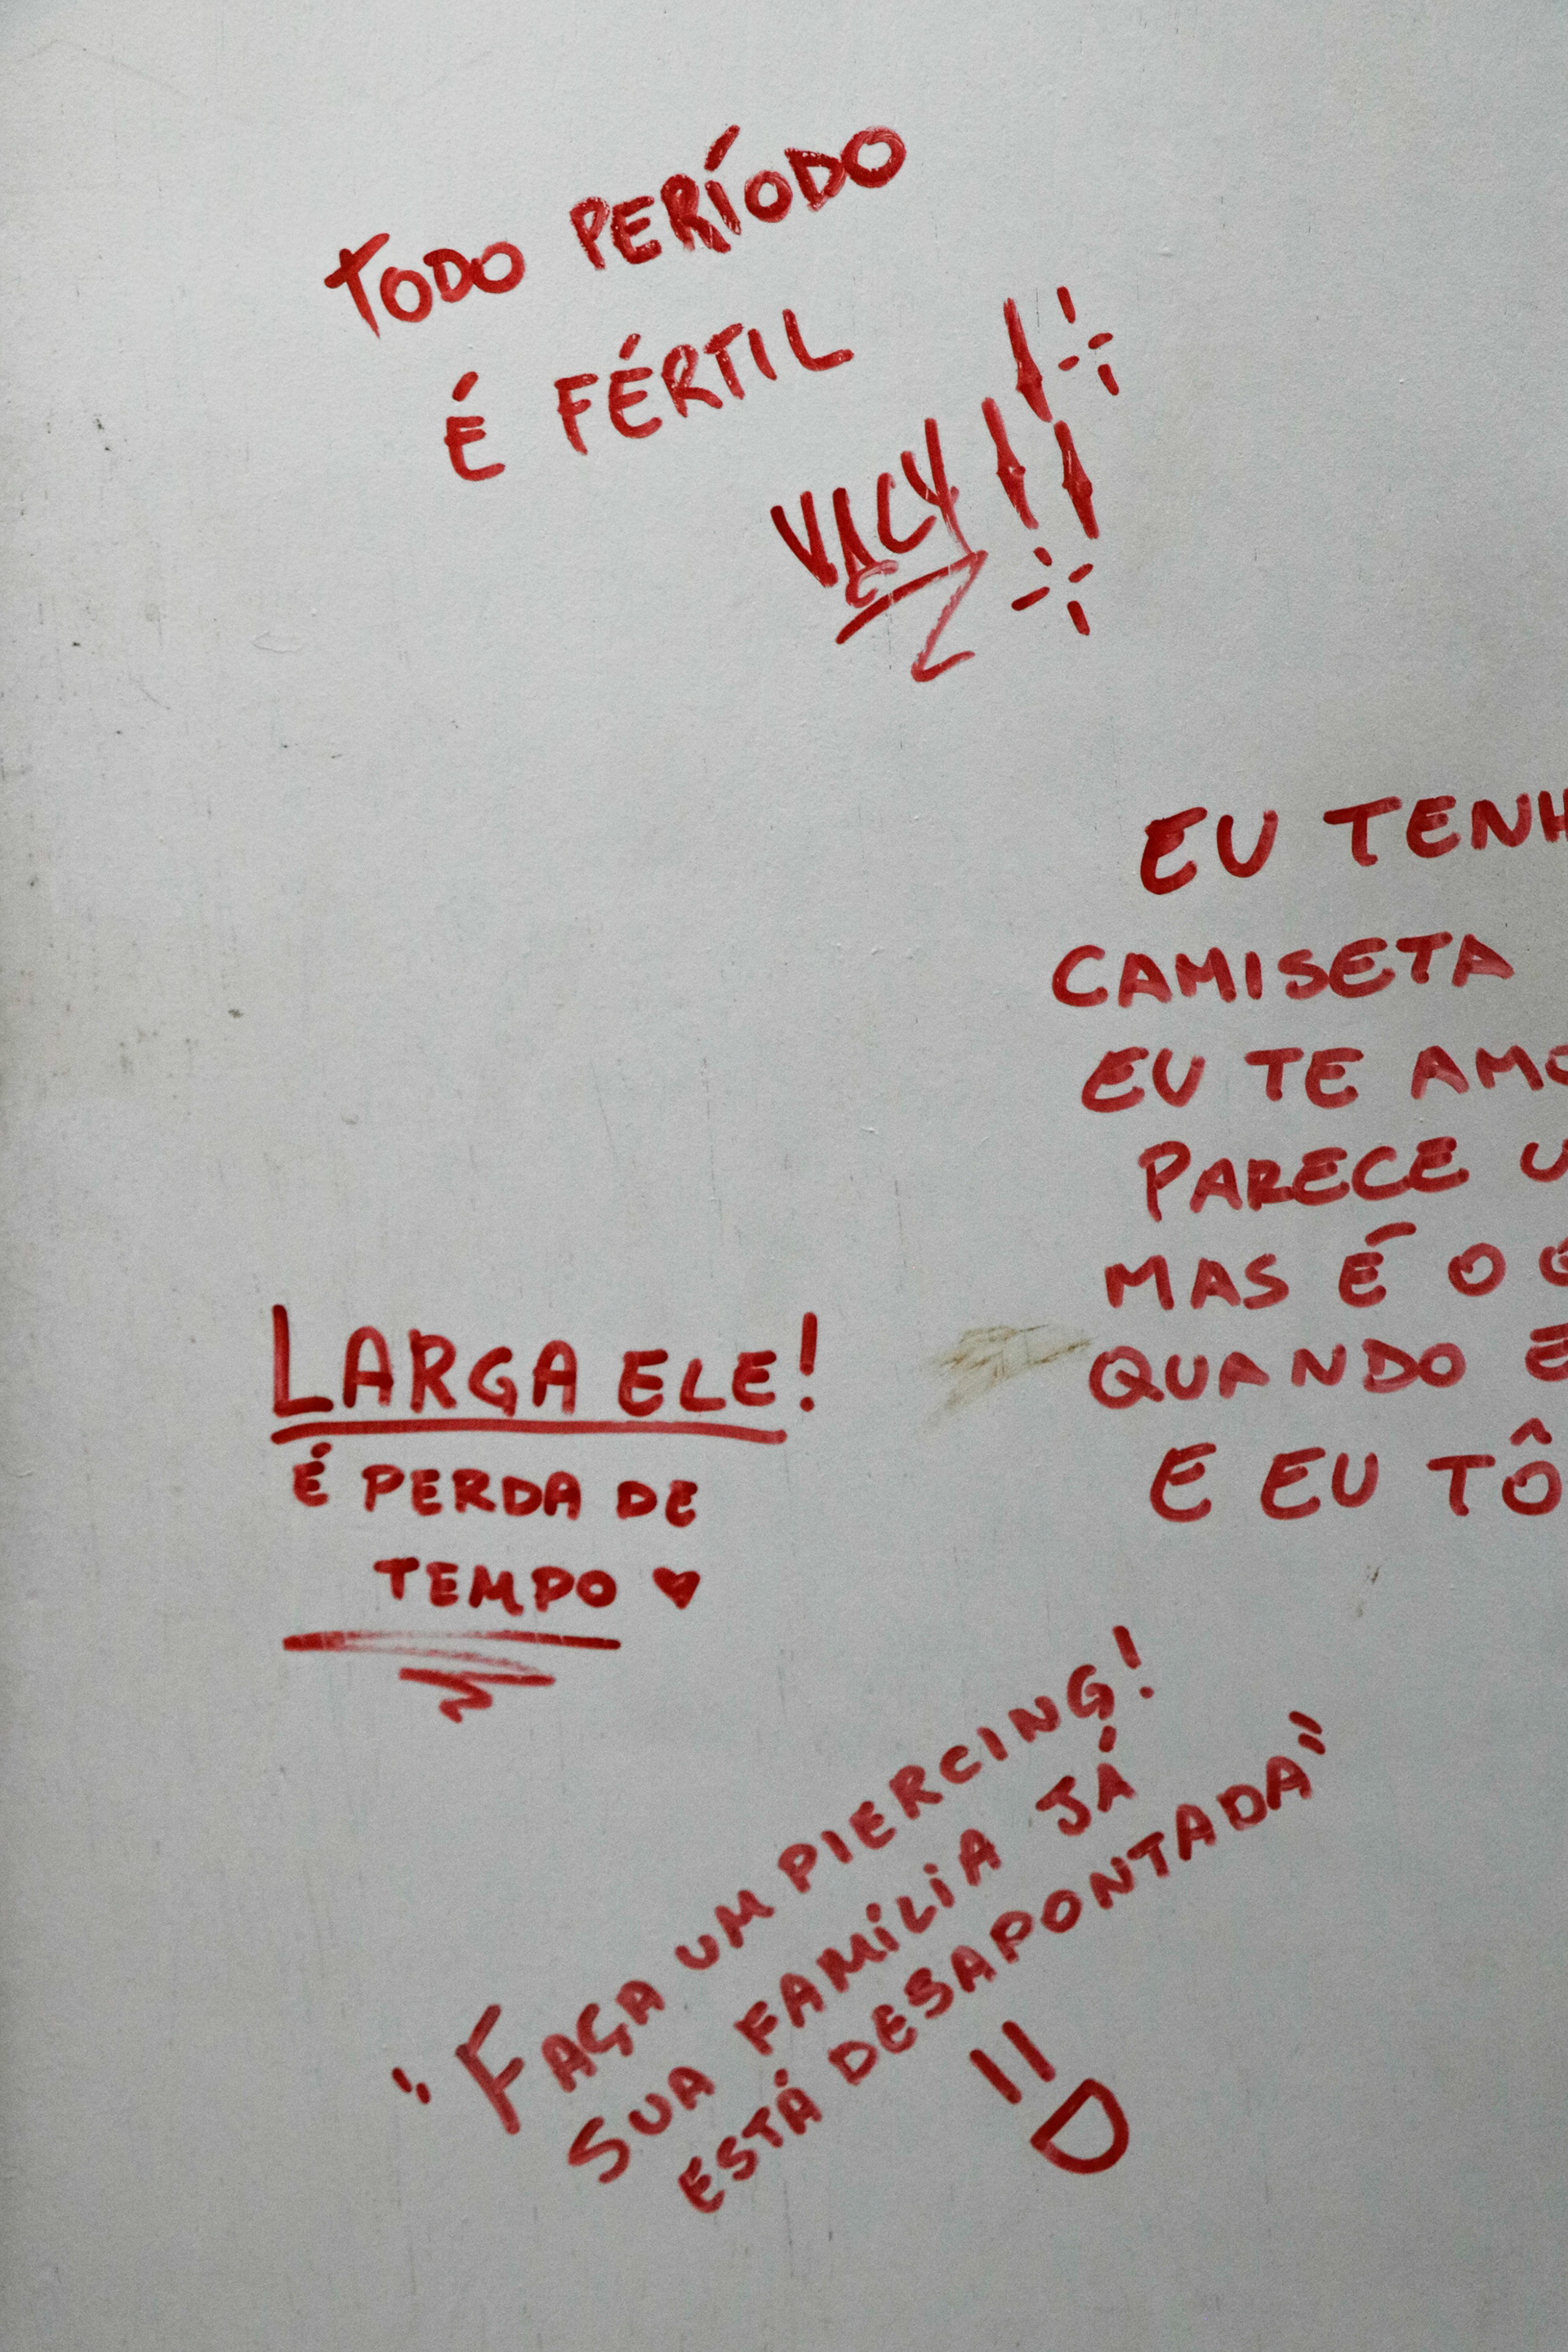 TODO PERÍODO
É FÉRTIL
VACY
EU TENH
CAMISETA
EU TE AMO
PARECE U
MAS É O
QUANDO E
E EU TÔ
LARGA ELE!
É PERDA DE
TEMPO ♥
"FAÇA UM PIERCING!
SUA FAMÍLIA JÁ
ESTÁ DESAPONTADA"
=D